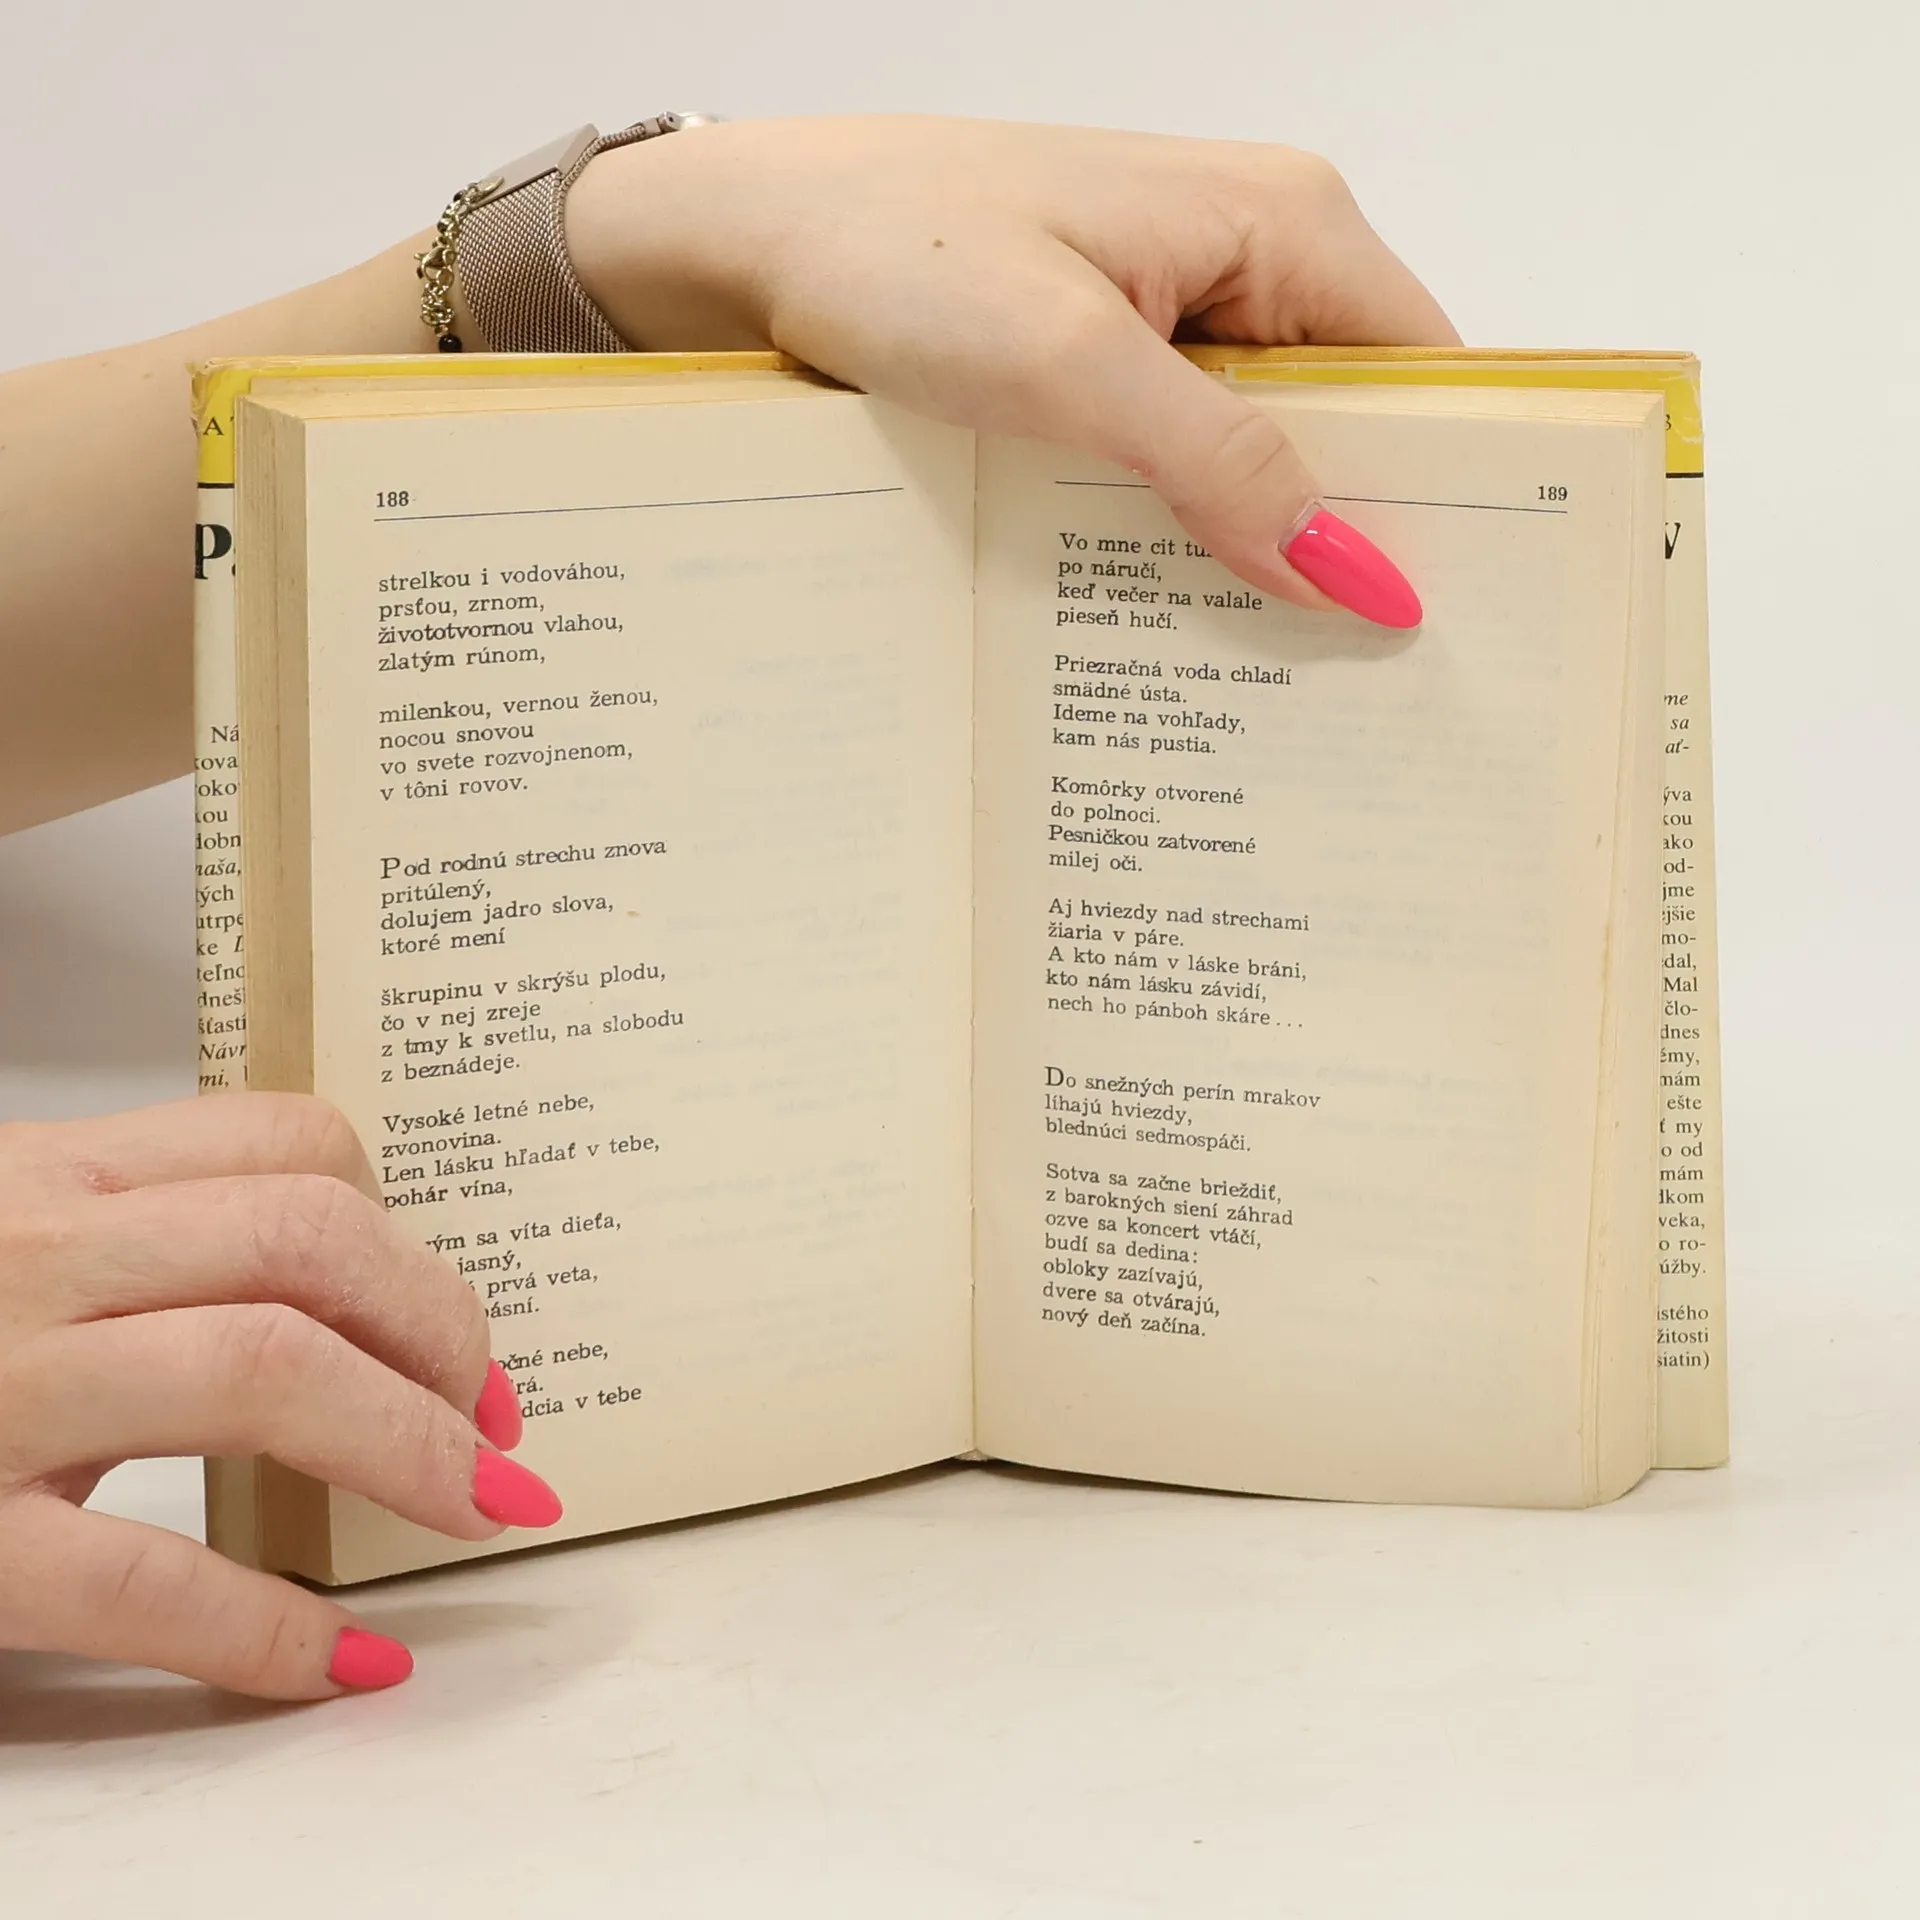 188
strelkou i vodováhou,
prsťou, zrnom,
živototvornou vlahou,
zlatým rúnom,
milenkou, vernou ženou,
nocou snovou
vo svete rozvojnenom,
v tôni rovov.
Pod rodnú strechu znova
pritúlený,
dolujem jadro slova,
ktoré mení
škrupinu v skrýšu plodu,
čo v nej zreje
z tmy k svetlu, na slobodu
z beznádeje.
Vysoké letné nebe,
zvonovina.
Len lásku hľadať v tebe,
pohár vína,
sa víta dieťa,
jasný,
prvá veta,
nebe,
v tebe
189
Vo mne cit
po náručí,
keď večer na valale
pieseň hučí.
Priezračná voda chladí
smädné ústa.
Ideme na vohľady,
kam nás pustia.
Komôrky otvorené
do polnoci.
Pesničkou zatvorené
milej oči.
Aj hviezdy nad strechami
žiaria v páre.
A kto nám v láske bráni,
kto nám lásku závidí,
nech ho pánboh skáre...
Do snežných perín mrakov
líhajú hviezdy,
blednúci sedmospáči.
Sotva sa začne brieždiť,
z barokných siení záhrad
ozve sa koncert vtáčí,
budí sa dedina:
obloky zazívajú,
dvere sa otvárajú,
nový deň začína.
sa
ako
Mal
dnes
ešte
my
od
mám